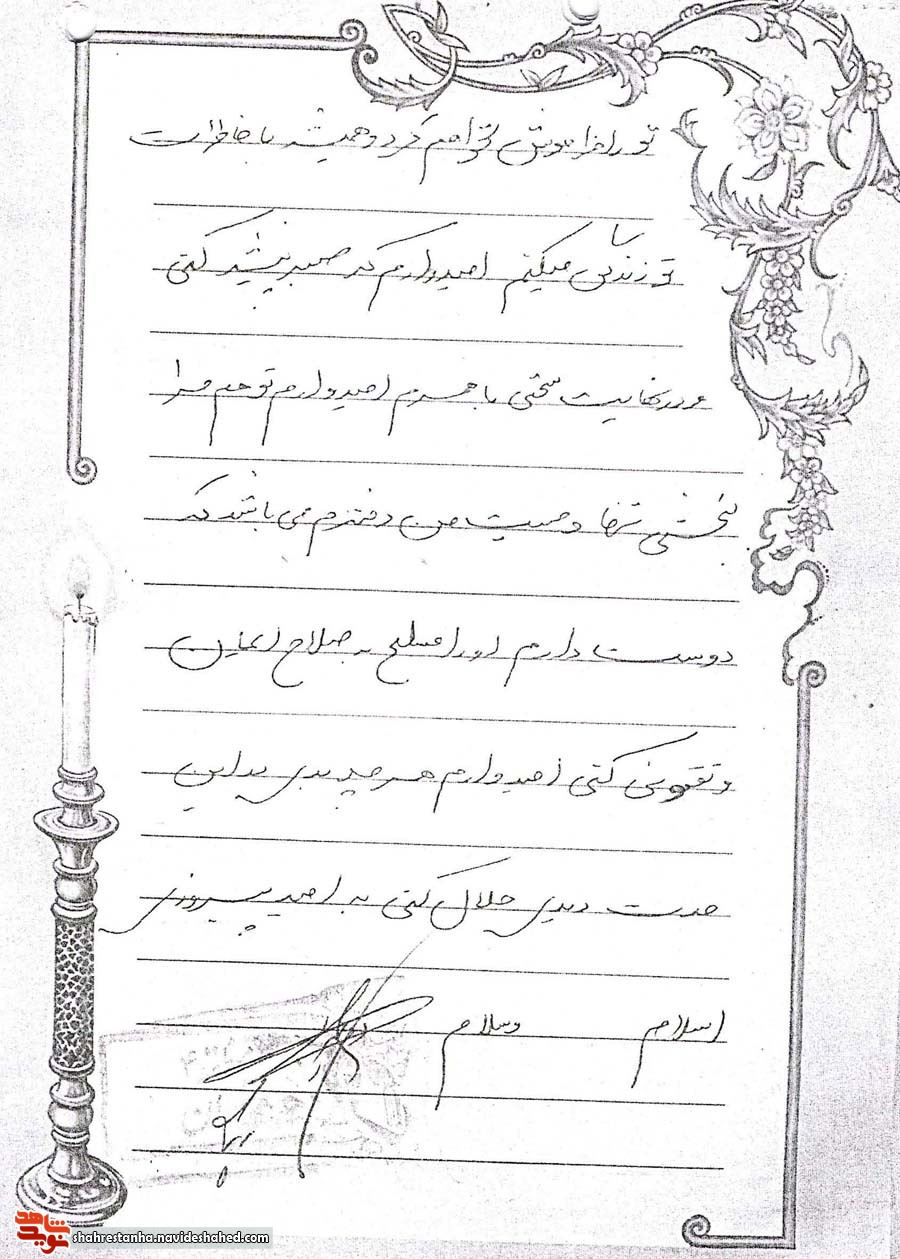 تو را فراموش نخواهم کرد و همیشه با خاطرات
تو زندگی میکنم امیدوارم که صبر پیشه کنی
و در نهایت سختی با همسرم امیدوارم تو هم مرا
ببخشی تنها وصیت من دخترم می باشد که
دوست دارم او را مسلح به صلاح ایمان
و تقوی کنی امیدوارم هر چه بدی در این
مدت دیدی حلال کنی به امید پیروزی
اسلام والسلام
نوید شاهد
shahrestanha.navideshahed.com